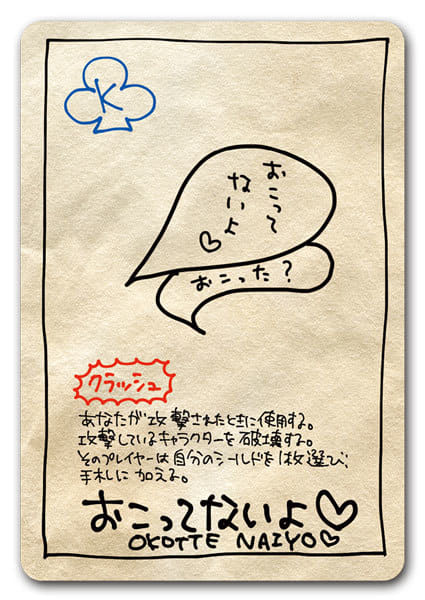 K
おこって
ないよ♡
おこった？
クラッシュ
あなたが攻撃されたときに使用する。
攻撃しているキャラクターを破壊する。
そのプレイヤーは自分のシールドを1枚選び、
手札に加える。
おこってないよ♡
OKOTTE NAIYO♡